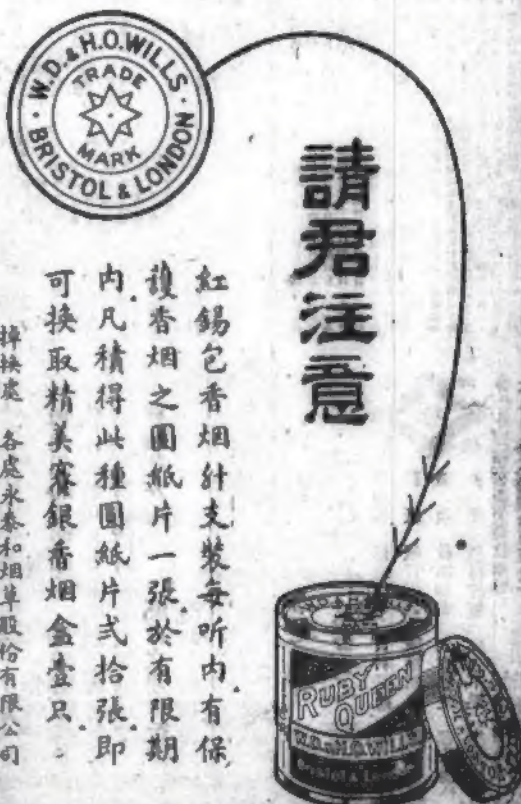 W.D. & H.O. WILLS · BRISTOL & LONDON ·
TRADE MARK
請君注意
紅錫包香烟廿支裝每听內有保
護香烟之圓紙片一張於有限期
內凡積得此種圓紙片弍拾張即
可換取精美賽銀香烟盒壹只
掉換處 各處永泰和烟草股份有限公司
W.D. & H.O. WILLS
RUBY QUEEN
W.D. & H.O. WILLS
Bristol & London